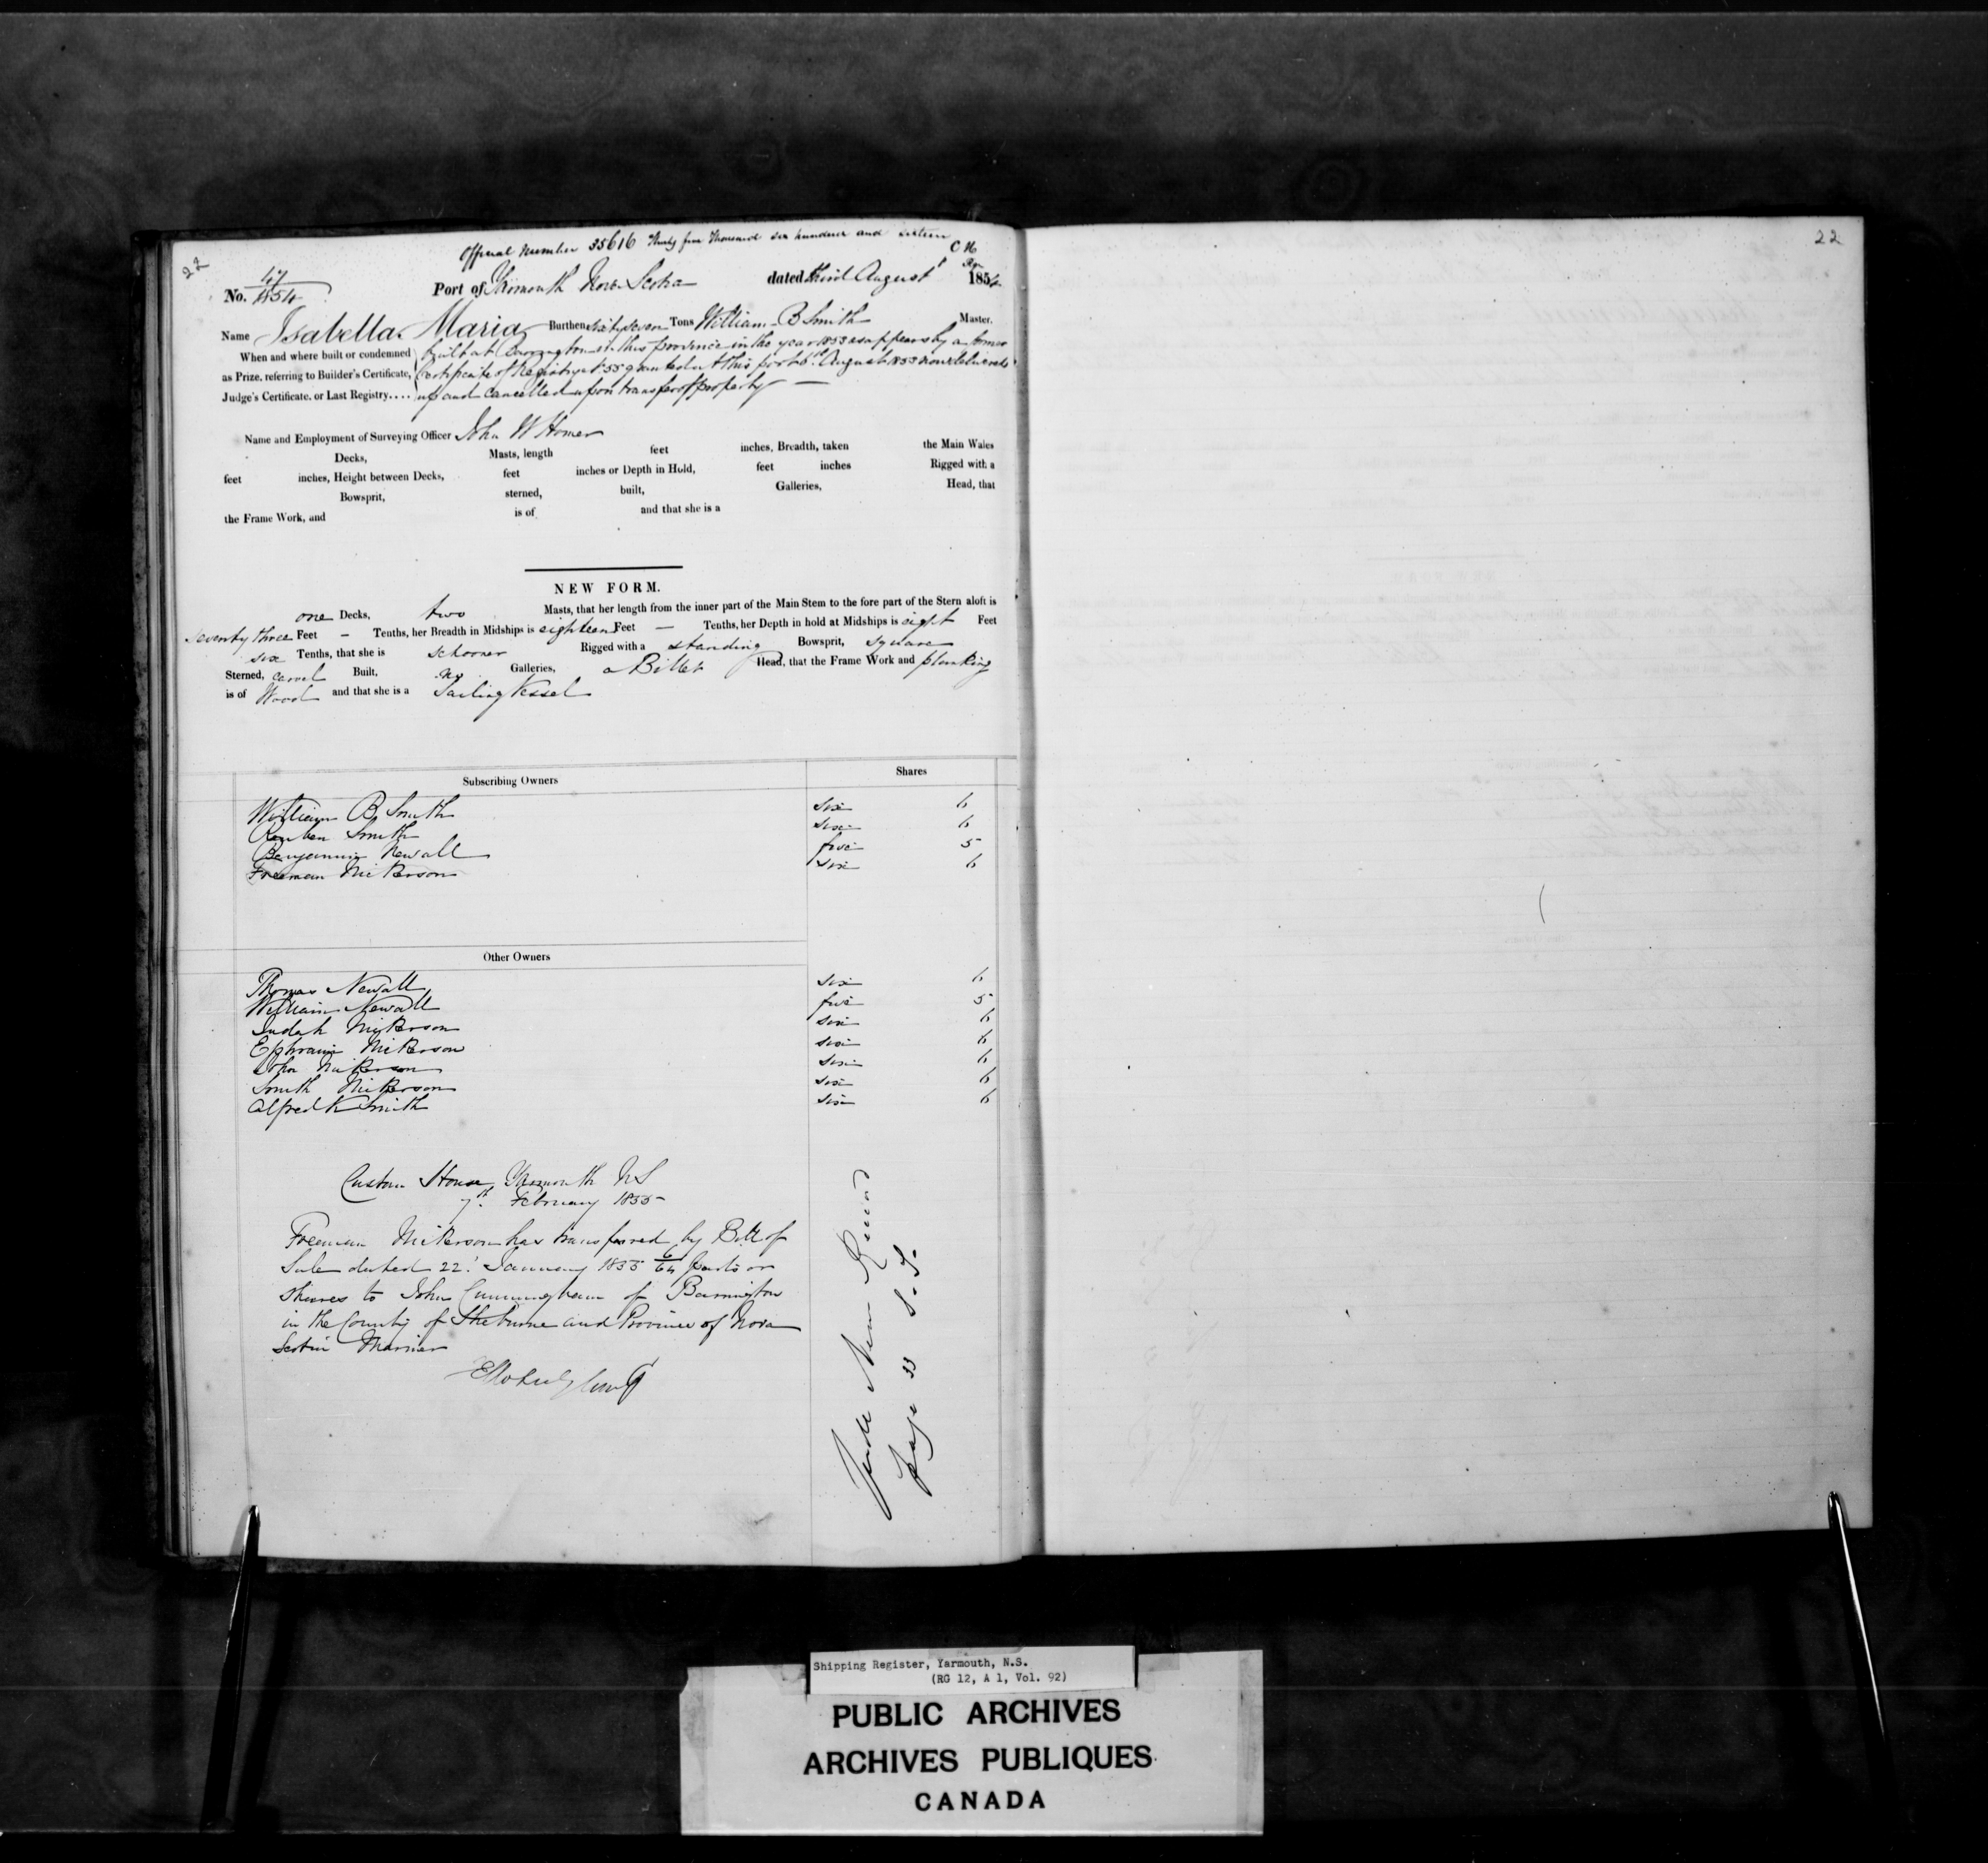 22
Official Number 35616 Thirty five Thousand six hundred and sixteen
C H
No. 17/1854 Port of Yarmouth Nova Scotia dated third August 1854
Name Isabella Maria Burthen sixty seven Tons William B Smith Master.
When and where built or condemned built at Barrington in this province in the year 1853 as appears by a former
as Prize, referring to Builder's Certificate, Certificate of Registry No 55 granted at this port 6th August 1853 now delivered
Judge's Certificate, or Last Registry.... up and cancelled upon transfer of property —
Name and Employment of Surveying Officer John W Homer
Decks, Masts, length feet inches, Breadth, taken the Main Wales
feet inches, Height between Decks, feet inches or Depth in Hold, feet inches Rigged with a
Bowsprit, sterned, built, Galleries, Head, that
the Frame Work, and is of and that she is a
NEW FORM.
one Decks, two Masts, that her length from the inner part of the Main Stem to the fore part of the Stern aloft is
seventy three Feet — Tenths, her Breadth in Midships is eighteen Feet — Tenths, her Depth in hold at Midships is eight Feet
six Tenths, that she is schooner Rigged with a standing Bowsprit, square
Sterned, carvel Built, no Galleries, a Billet Head, that the Frame Work and planking
is of Wood and that she is a Sailing Vessel
Subscribing Owners Shares
William B Smith six 6
Reuben Smith six 6
Benjamin Newall five 5
Freeman Nickerson six 6
Other Owners
Thomas Newall six 6
William Newall five 5
Judah Nickerson six 6
Ephraim Nickerson six 6
John Nickerson six 6
Smith Nickerson six 6
Alfred K Smith six 6
Custom House Yarmouth NS
7th February 1855
Freeman Nickerson has transferred by Bill of
Sale dated 22d January 1855 6/64 parts or
shares to John Cunningham of Barrington
in the County of Shelburne and Province of Nova
Scotia Mariner
Vide New Record
page 33 S. S.
22
Shipping Register, Yarmouth, N.S.
(RG 12, A 1, Vol. 92)
PUBLIC ARCHIVES
ARCHIVES PUBLIQUES
CANADA